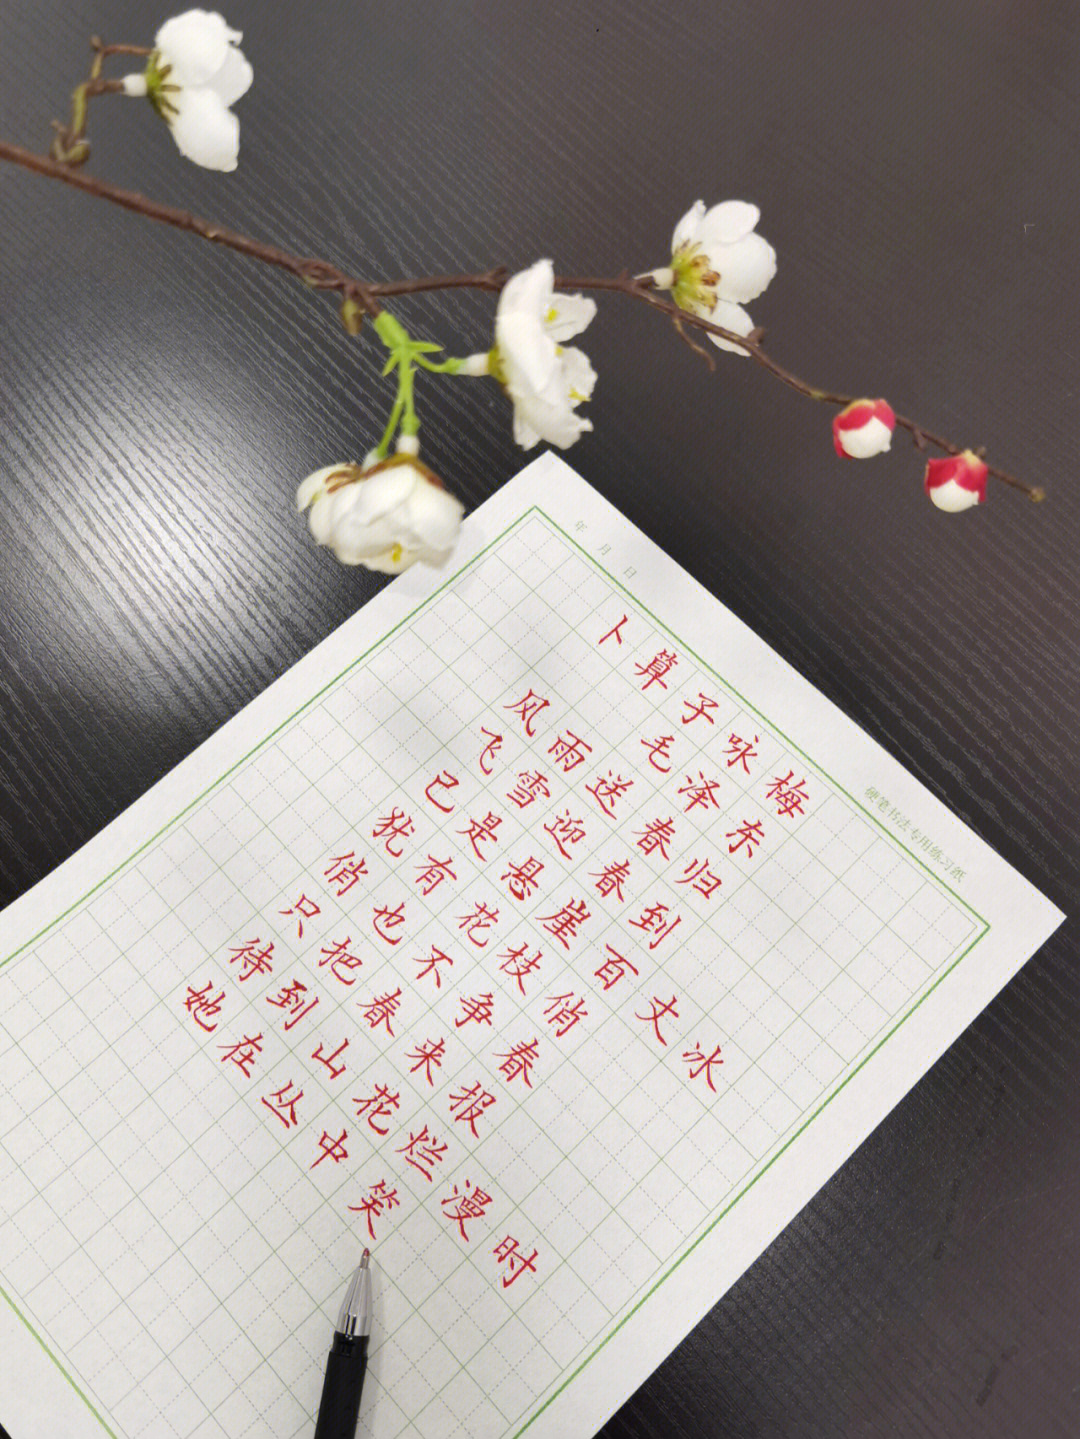 年 月 日
卜算子咏梅
毛泽东
风雨送春归
飞雪迎春到
已是悬崖百丈冰
犹有花枝俏
俏也不争春
只把春来报
待到山花烂漫时
她在丛中笑
硬笔书法专用练习纸